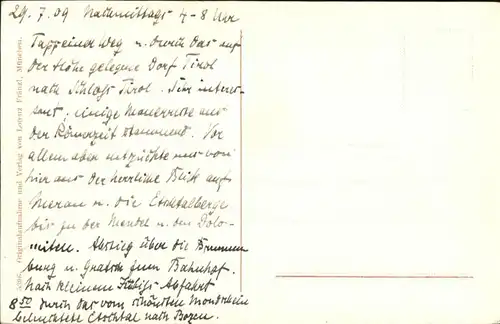 29. 7. 09 Nachmittags 4-8 Uhr
Tappeiner Weg u. durch das auf
der Höhe gelegene Dorf Tirol
nach Schloß Tirol. Sehr interes-
sant; einige Mauerreste aus
der Römerzeit stammend. Vor
allem aber entzückte uns von
hier aus der herrliche Blick auf
Meran u. die Etschtalberge
bis zu der Mendel u. den Dolo-
miten. Abstieg über die Brunnen
burg u. Gratsch zum Bahnhof.
Nach kleinem Imbiss Abfahrt
8 50 durch das vom schönsten Mondschein
beleuchtete Etschtal nach Bozen.
Originalaufnahme und Verlag von Lorenz Fränzl, München.